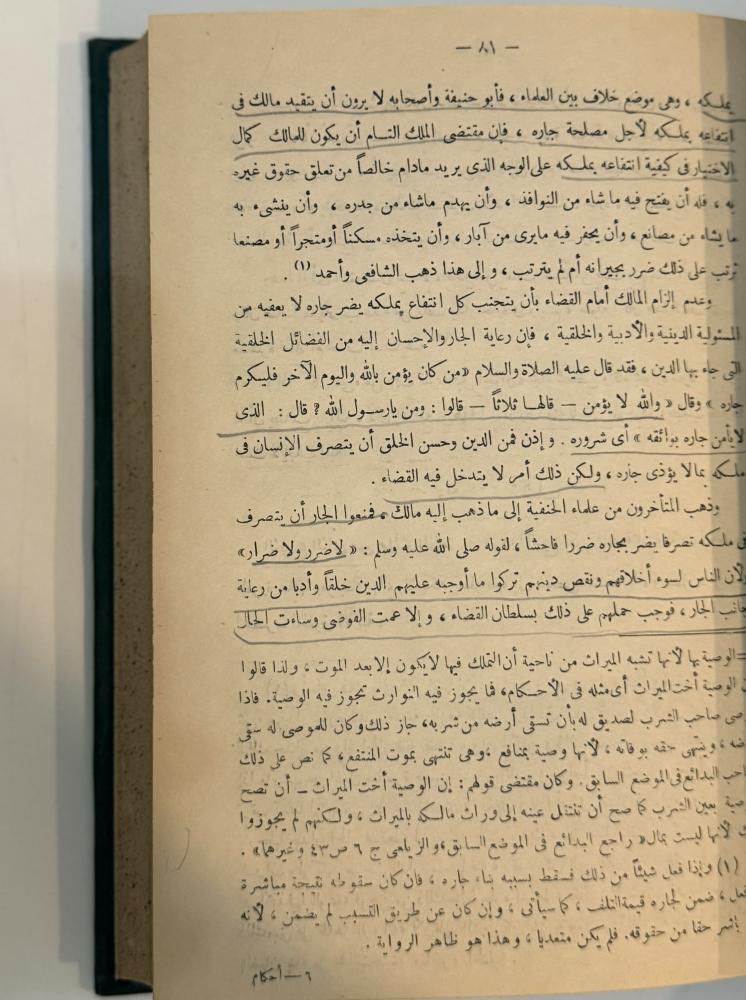 — ٨١ —
يملكه ، وهى موضع خلاف بين العلماء ، فأبو حنيفة وأصحابه لا يرون أن يتقيد مالك فى
انتفاعه بملكه لأجل مصلحة جاره ، فإن مقتضى الملك التام أن يكون للمالك كمال
الاختيار فى كيفية انتفاعه بملكه على الوجه الذى يريد مادام خالصاً من تعلق حقوق غيره
به ، فله أن يفتح فيه ما شاء من النوافذ ، وأن يهدم ماشاء من جدره ، وأن ينشىء به
ما يشاء من مصانع ، وأن يحفر فيه مايرى من آبار ، وأن يتخذه مسكناً أومتجراً أو مصنعا
ترتب على ذلك ضرر بجيرانه أم لم يترتب ، و إلى هذا ذهب الشافعى وأحمد (١) .
وعدم إلزام المالك أمام القضاء بأن يتجنب كل انتفاع بملكه يضر جاره لا يعفيه من
المسئولية الدينية والأدبية والخلقية ، فإن رعاية الجار والإحسان إليه من الفضائل الخلقية
التى جاء بها الدين ، فقد قال عليه الصلاة والسلام «من كان يؤمن بالله واليوم الآخر فليكرم
جاره » وقال « والله لا يؤمن — قالهـا ثلاثاً — قالوا : ومن يارسـول الله ? قال : الذى
لا يأمن جاره بوائقه » أى شروره . و إذن فمن الدين وحسن الخلق أن يتصرف الإنسان فى
ملكه بمالا يؤذى جاره ، ولكن ذلك أمر لا يتدخل فيه القضاء .
وذهب المتأخرون من علماء الحنفية إلى ما ذهب إليه مالك ، فمنعوا الجار أن يتصرف
فى ملكه تصرفا يضر بجاره ضررا فاحشاً ، لقوله صلى الله عليه وسلم : « لاضرر ولا ضرار»
ولأن الناس لسوء أخلاقهم ونقص دينهم تركوا ما أوجبه عليهم الدين خلقاً وأدبا من رعاية
جانب الجار ، فوجب حملهم على ذلك بسلطان القضاء ، و إلا عمت الفوضى وساءت الحال
=الوصية بها لأنها تشبه الميراث من ناحية أن التملك فيها لايكون إلا بعد الموت ، ولذا قالوا
الوصية أخت الميراث أى مثله فى الأحكام، فما يجوز فيه التوارث تجوز فيه الوصية. فاذا
صاحب الشرب لصديق له بأن تسقى أرضه من شربه، جاز ذلك وكان للموصى له سقى
، وينتهى حقه بوفاته ، لأنها وصية بمنافع ،وهى تنتهى بموت المنتفع، كما نص على ذلك
البدائع فى الموضع السابق. وكان مقتضى قولهم : إن الوصية أخت الميراث ــ أن تصح
بعين الشرب كما صح أن تنتقل عينه إلى وراث مالكه بالميراث ، ولكنهم لم يجوزوا
لأنها ليست بمال« راجع البدائع فى الموضع السابق،والزيلعى ج ٦ ص ٤٣ وغيرهما» .
(١) وإذا فعل شيئاً من ذلك فسقط بسببه بناء جاره ، فان كان سقوطه نتيجة مباشرة
، ضمن لجاره قيمة التلف ، كما سيأتى ، وإن كان عن طريق التسبب لم يضمن ، لأنه
باشر حقا من حقوقه. فلم يكن متعديا ، وهذا هو ظاهر الرواية .
٦ — أحكام